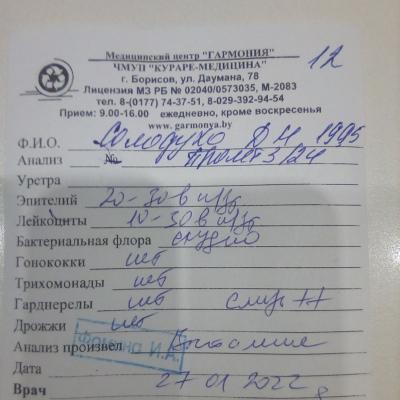 Медицинский центр "ГАРМОНИЯ"
ЧМУП "КУРАРЕ-МЕДИЦИНА"
12
г. Борисов, ул. Даумана, 78
Лицензия МЗ РБ № 02040/0573035, М-2083
тел. 8-(0177) 74-37-51, 8-029-392-94-54
Прием: 9.00-16.00 ежедневно, кроме воскресенья
www.garmonya.by
Ф.И.О. Солодухо Д Н 1995
Анализ № 3124
Уретра
Эпителий 20-30 в п/зр
Лейкоциты 10-30 в п/зр
Бактериальная флора скудно
Гонококки нет
Трихомонады нет
Гарднерелы нет слизь ++
Дрожжи нет
Анализ произвел ФОМИНА И.А.
Дата
27 01 2022
Врач